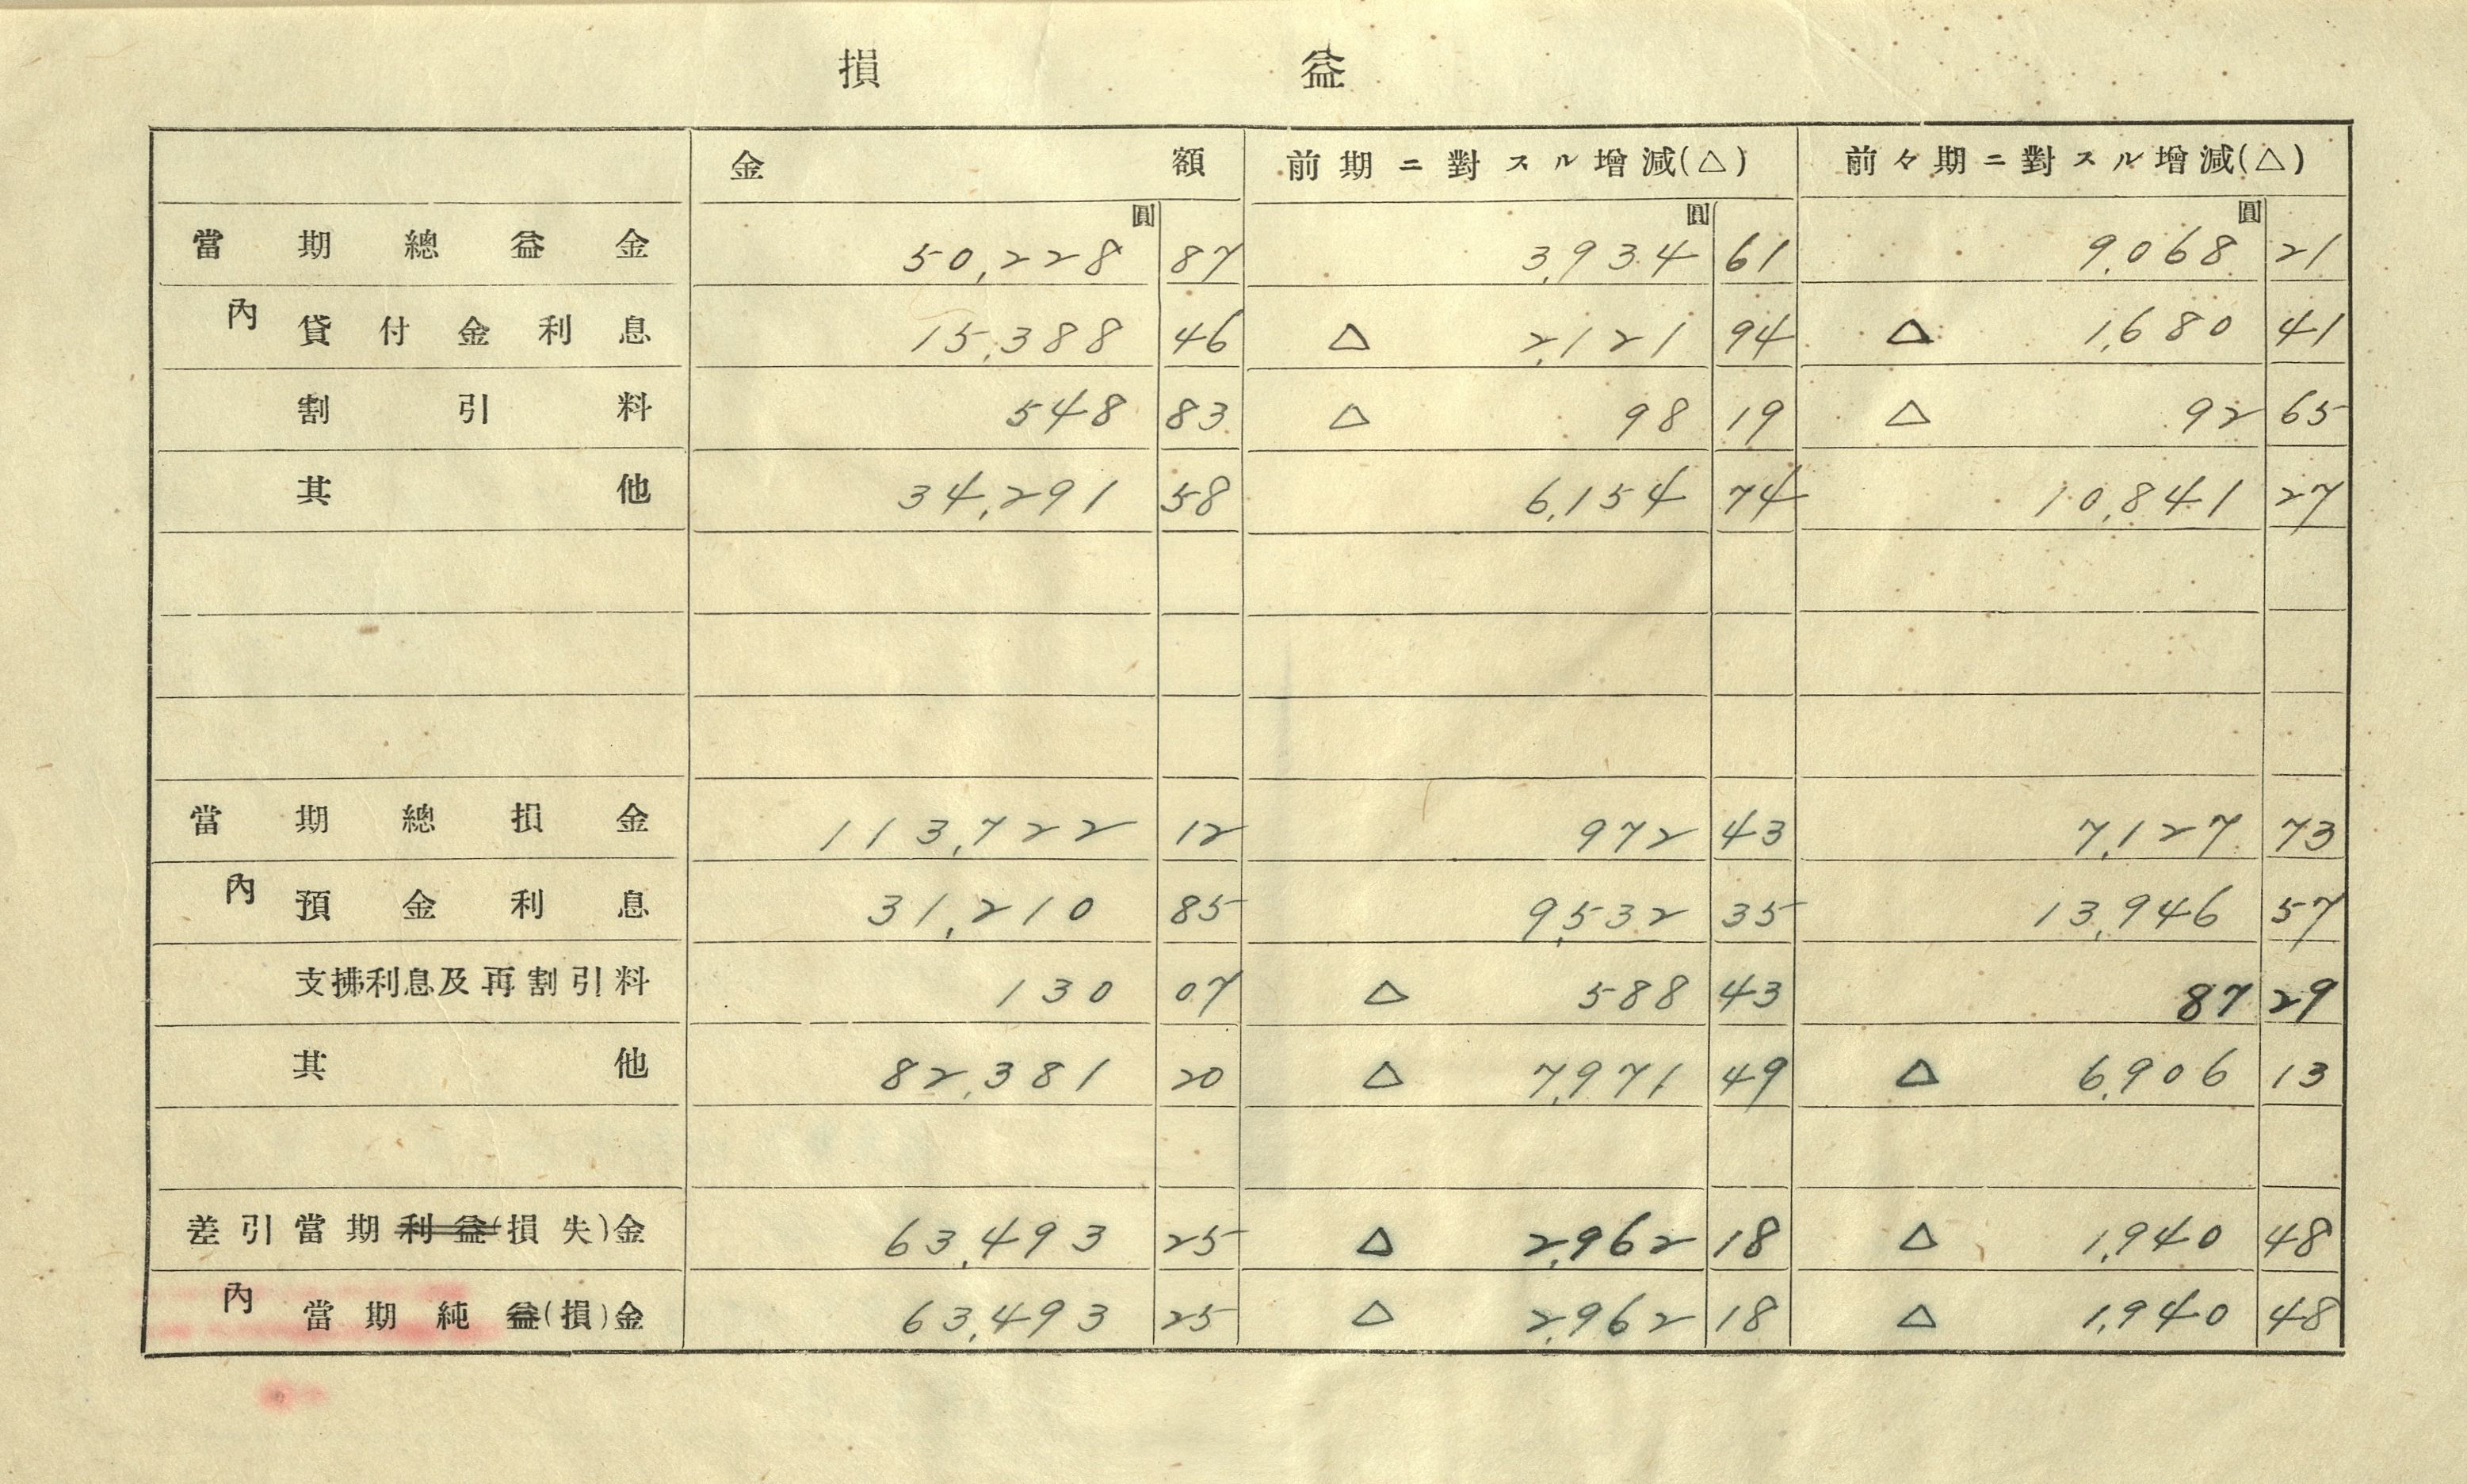 損益
金額 前期ニ對スル增減(△) 前々期ニ對スル增減(△)
圓 圓 圓
當期總益金 50,228 87 3,934 61 9,068 21
內 貸付金利息 15,388 46 △ 2,121 94 △ 1,680 41
割引料 548 83 △ 98 19 △ 92 65
其他 34,291 58 6,154 74 10,841 27
當期總損金 113,722 12 972 43 7,127 73
內 預金利息 31,210 85 9,532 35 13,946 57
支拂利息及再割引料 130 07 △ 588 43 87 29
其他 82,381 20 △ 7,971 49 △ 6,906 13
差引當期利益(損失)金 63,493 25 △ 2,962 18 △ 1,940 48
內 當期純益(損)金 63,493 25 △ 2,962 18 △ 1,940 48